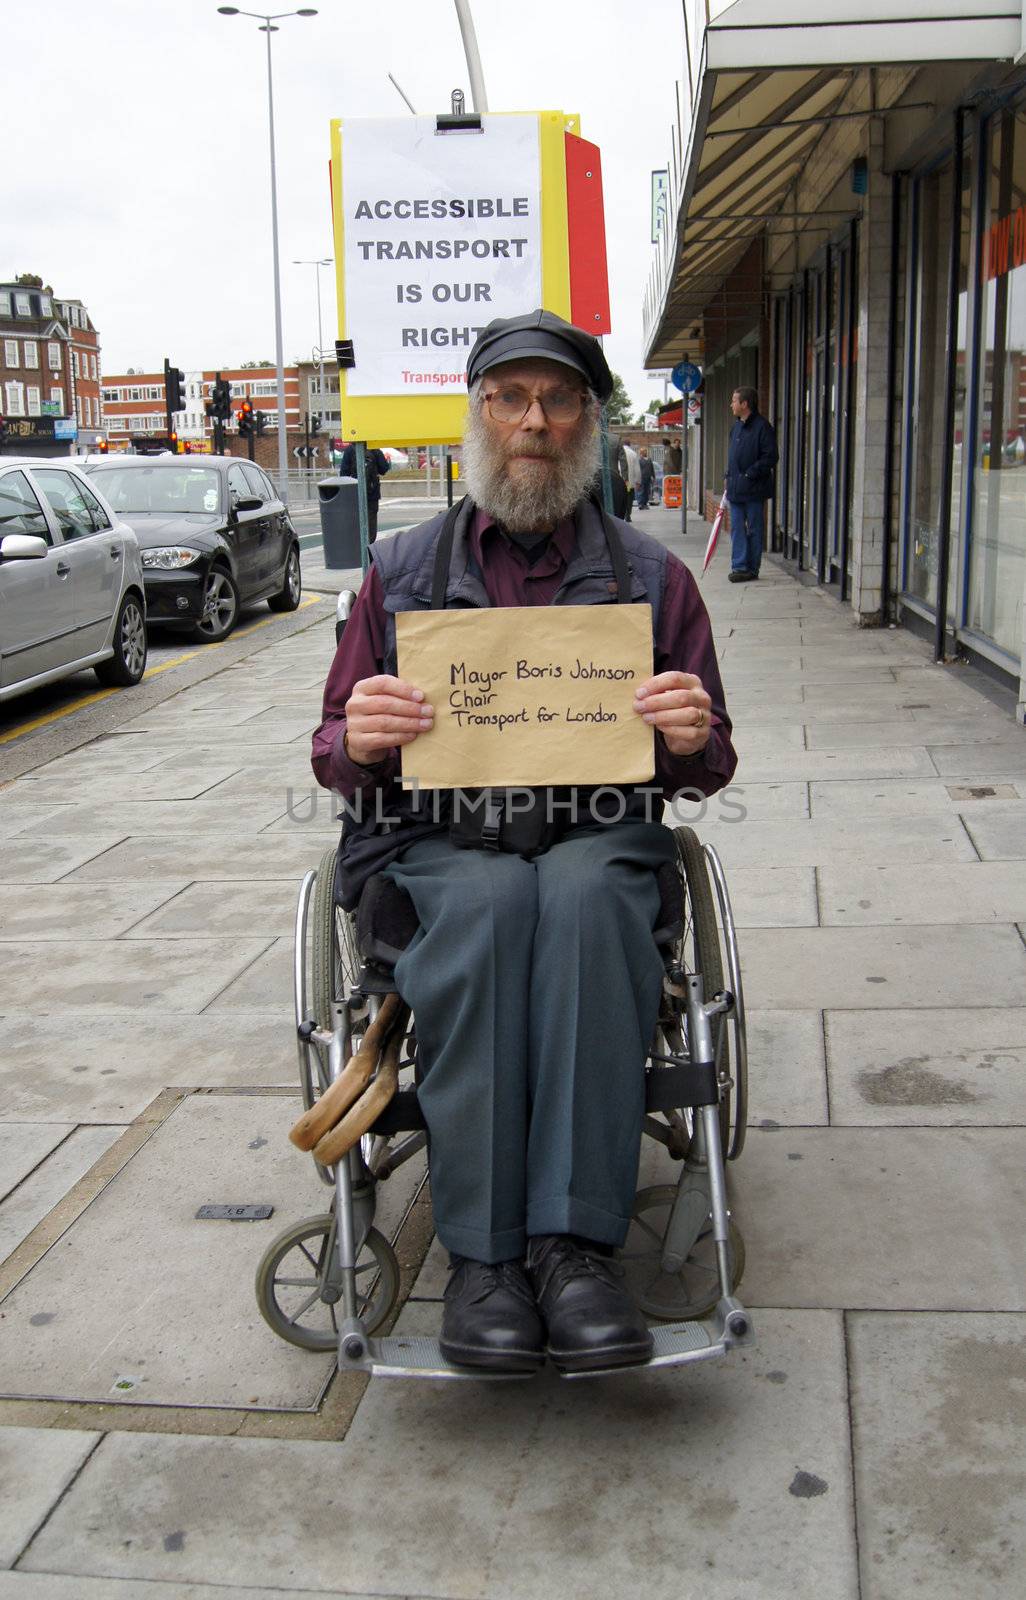 ACCESSIBLE
TRANSPORT
IS OUR
RIGHT
Transport
Mayor Boris Johnson
Chair
Transport for London
UNLIMPHOTOS